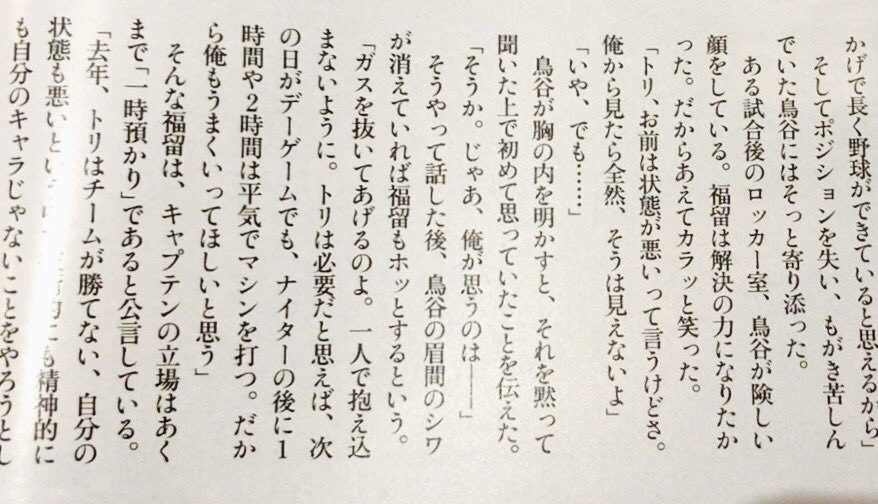 かげで長く野球ができていると思えるから」
そしてポジションを失い、もがき苦しん
でいた鳥谷にはそっと寄り添った。
ある試合後のロッカー室、鳥谷が険しい
顔をしている。福留は解決の力になりたか
った。だからあえてカラッと笑った。
「トリ、お前は状態が悪いって言うけどさ。
俺から見たら全然、そうは見えないよ」
「いや、でも……」
鳥谷が胸の内を明かすと、それを黙って
聞いた上で初めて思っていたことを伝えた。
「そうか。じゃあ、俺が思うのは――」
そうやって話した後、鳥谷の眉間のシワ
が消えていれば福留もホッとするという。
「ガスを抜いてあげるのよ。一人で抱え込
まないように。トリは必要だと思えば、次
の日がデーゲームでも、ナイターの後に1
時間や2時間は平気でマシンを打つ。だか
ら俺もうまくいってほしいと思う」
そんな福留は、キャプテンの立場はあく
まで「一時預かり」であると公言している。
「去年、トリはチームが勝てない、自分の
状態も悪いという にも精神的に
も自分のキャラじゃないことをやろうとし